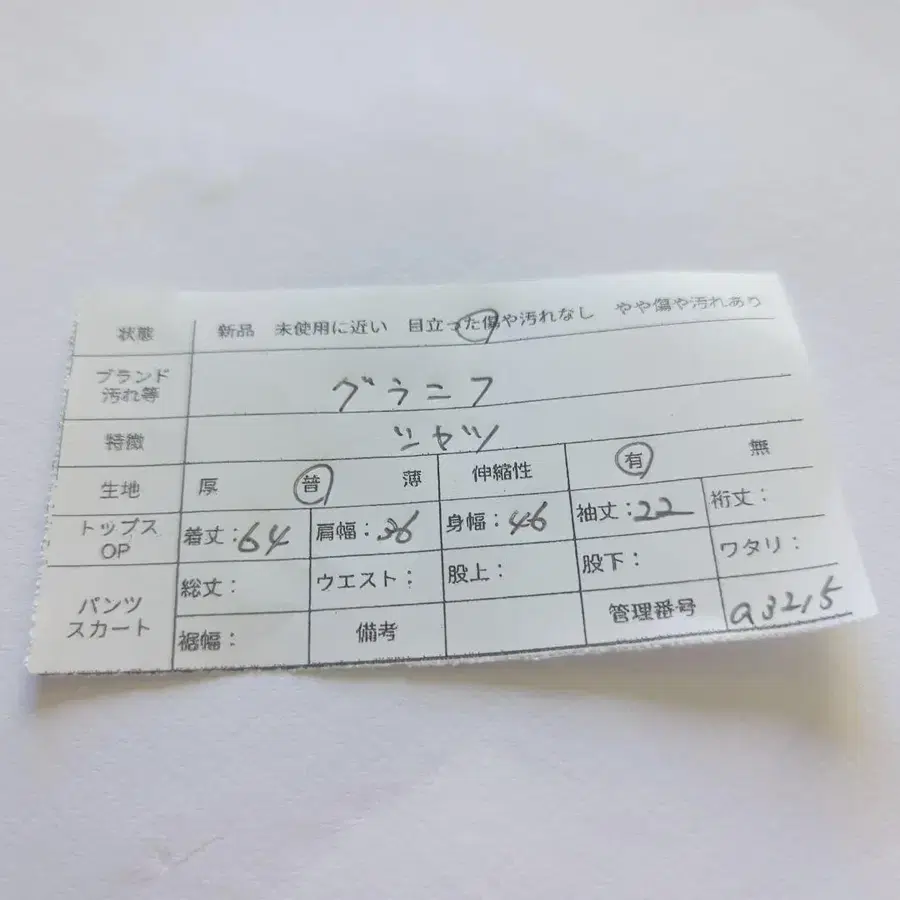 状態 新品 未使用に近い 目立った傷や汚れなし やや傷や汚れあり
ブランド
汚れ等 グラニフ
特徴 シャツ
生地 厚 普 薄 伸縮性 有 無
トップス
OP 着丈:64 肩幅:36 身幅:46 袖丈:22 裄丈:
パンツ
スカート 総丈: ウエスト: 股上: 股下: ワタリ:
裾幅: 備考 管理番号 a3215